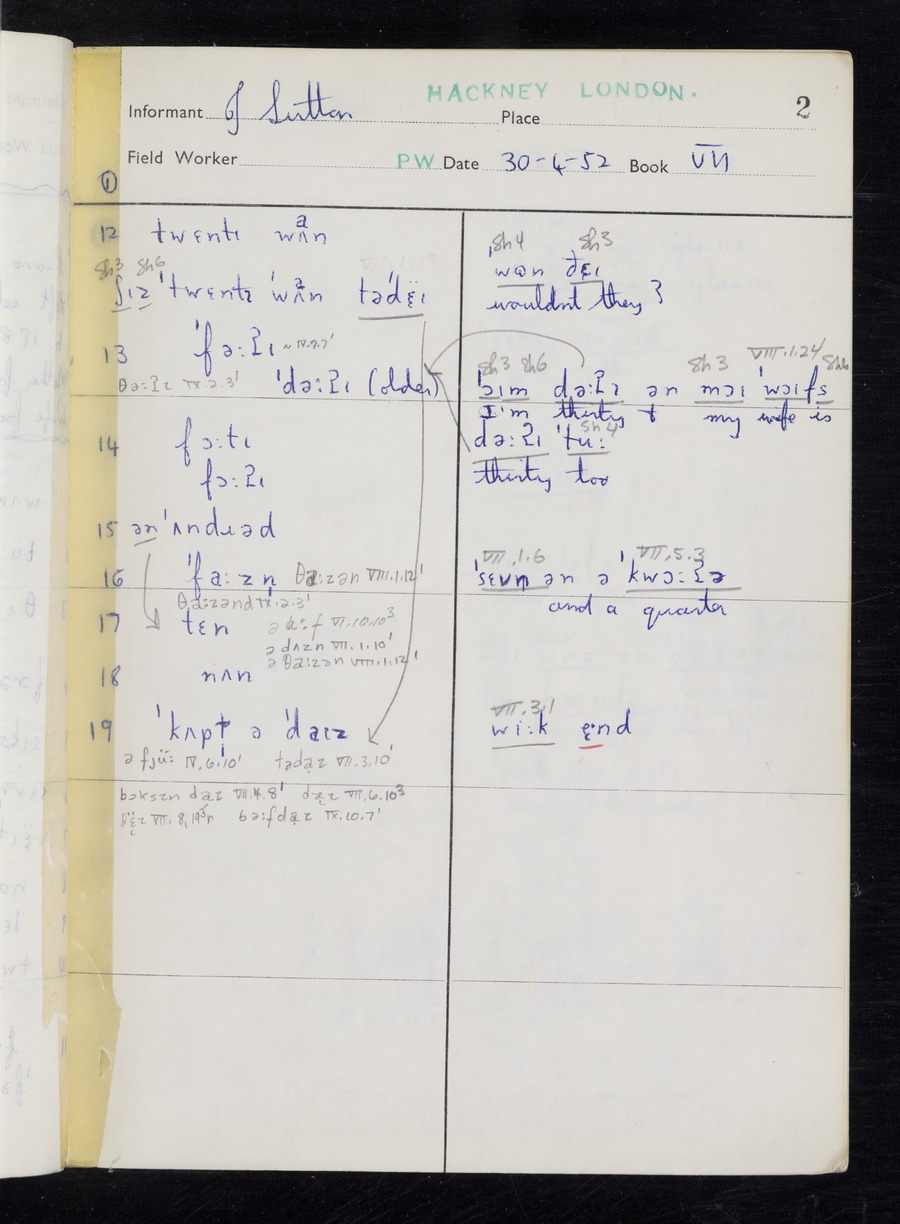 HACKNEY LONDON.
Informant J Sutton Place 2
Field Worker PW Date 30-4-52 Book VII
①
12 twɛntɪ wʌn
a
sh3 sh6
ʃɪz ˈtwɛntɪ ˈwʌn təˈdɛ̈ɪ
a
13 ˈfəːʔɪ ~ IX.2.7ˡ
θəːʔɪ IX.2.3ˡ ˈdəːʔɪ (older)
14 fɔːtɪ
fɔːʔɪ
15 ənˈʌndɹəd
16 ˈfaːzn θaːzən VIII.1.12ˡ
θaːzənd IX.2.3ˡ
17 tɛn VI.10.10³
ə dʌzn VII.1.10ˡ
ə θaːzən VIII.1.12ˡ
18 nʌn
19 ˈkʌpɫ ə ˈdaɪz
ə fjüː IV.6.10ˡ tədaɪ VII.3.10ˡ
bɔksɪn daɪ VII.4.8ˡ dæɪ VII.6.10³
bəːfdaɪ IX.10.7ˡ
sh4 sh3
wɒn ðɛɪ
wouldn't they?
sh3 sh6 sh3 VIII.1.24 sh6
ˈɔɪm dəːʔɪ ən mɔɪ ˈwɔɪfs
I'm thirty & my wife is
sh4
dəːʔɪ ˈtuː
thirty too
VII.1.6 VII.5.3
ˈsɛvn ən ə ˈkwɔːʔə
and a quarter
VII.3.1
wiːk ɛnd